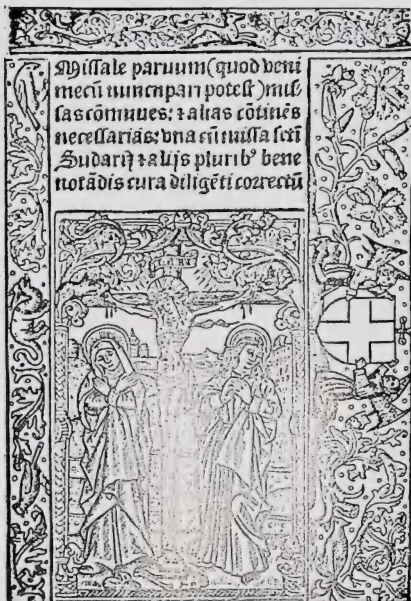 Missale paruum (quod veni
mecū nuncupari potest) mis-
sas cōmunes: ⁊ alias cōtinēs
necessarias: vna cū missa scti
Sudarij ⁊ alijs pluribꝰ bene
notādis cura diligēti correctū
I N R I